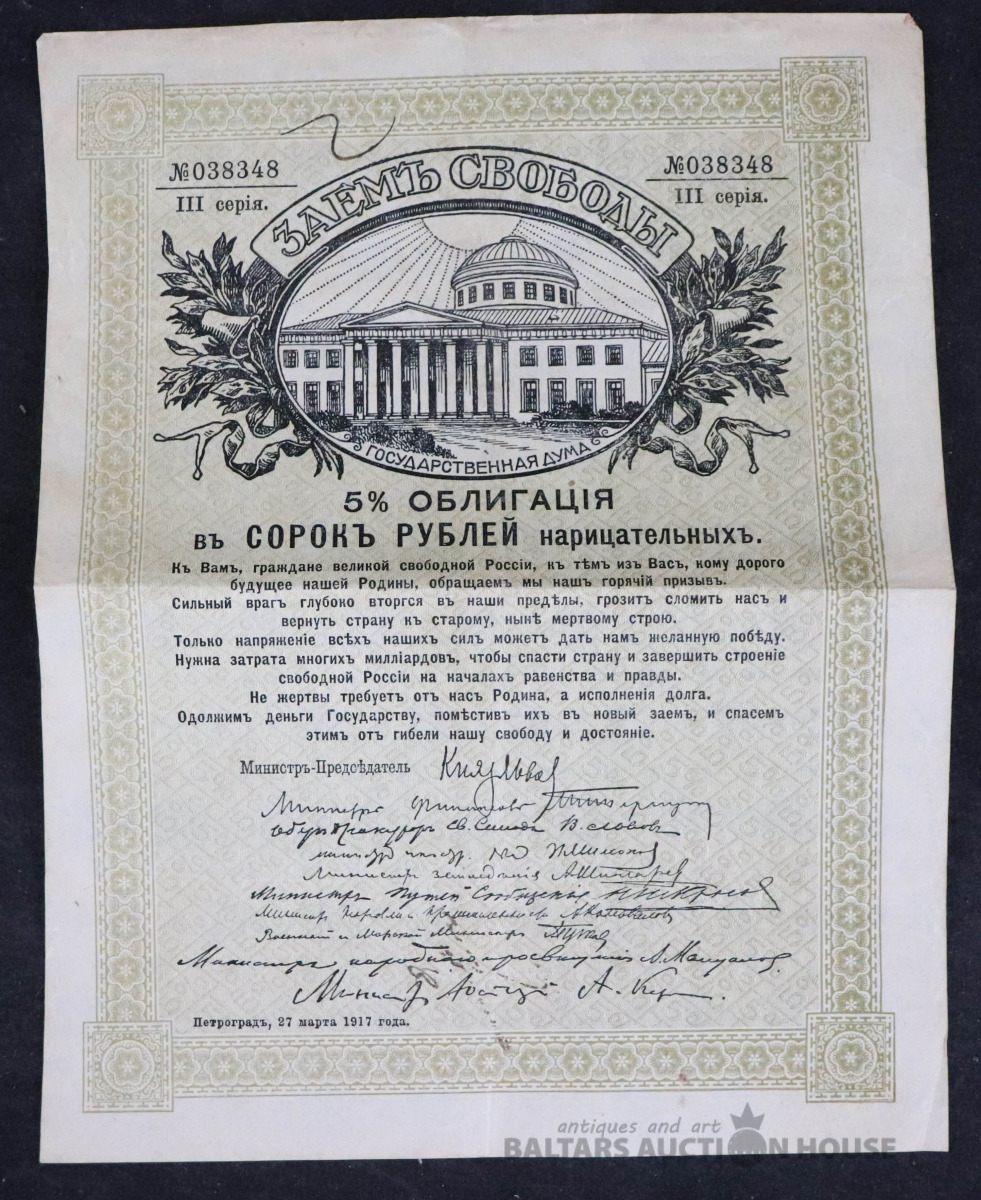 №038348
III серія.
№038348
III серія.
ЗАЕМЪ СВОБОДЫ
ГОСУДАРСТВЕННАЯ ДУМА
5% ОБЛИГАЦІЯ
въ СОРОКЪ РУБЛЕЙ нарицательныхъ.
Къ Вамъ, граждане великой свободной Россіи, къ тѣмъ изъ Васъ, кому дорого
будущее нашей Родины, обращаемъ мы нашъ горячій призывъ.
Сильный врагъ глубоко вторгся въ наши предѣлы, грозитъ сломить насъ и
вернуть страну къ старому, нынѣ мертвому строю.
Только напряженіе всѣхъ нашихъ силъ можетъ дать намъ желанную побѣду.
Нужна затрата многихъ милліардовъ, чтобы спасти страну и завершить строеніе
свободной Россіи на началахъ равенства и правды.
Не жертвы требуетъ отъ насъ Родина, а исполненія долга.
Одолжимъ деньги Государству, помѣстивъ ихъ въ новый заемъ, и спасемъ
этимъ отъ гибели нашу свободу и достояніе.
Министръ-Предсѣдатель Князь Львов
Министръ Финансовъ
Оберъ Прокуроръ Св. Синода В. Львовъ
П Милюков
Министръ земледѣлія А Шингарев
Министръ Путей Сообщенія Н Некрасов
Министр Торговли и Промышленности А Коновалов
Военный и Морской Министръ Гучков
Министръ народнаго просвѣщенія А. Мануйлов
Министр Юстиціи А. Кер
Петроградъ, 27 марта 1917 года.
antiques and art
BALTARS AUCTION HOUSE